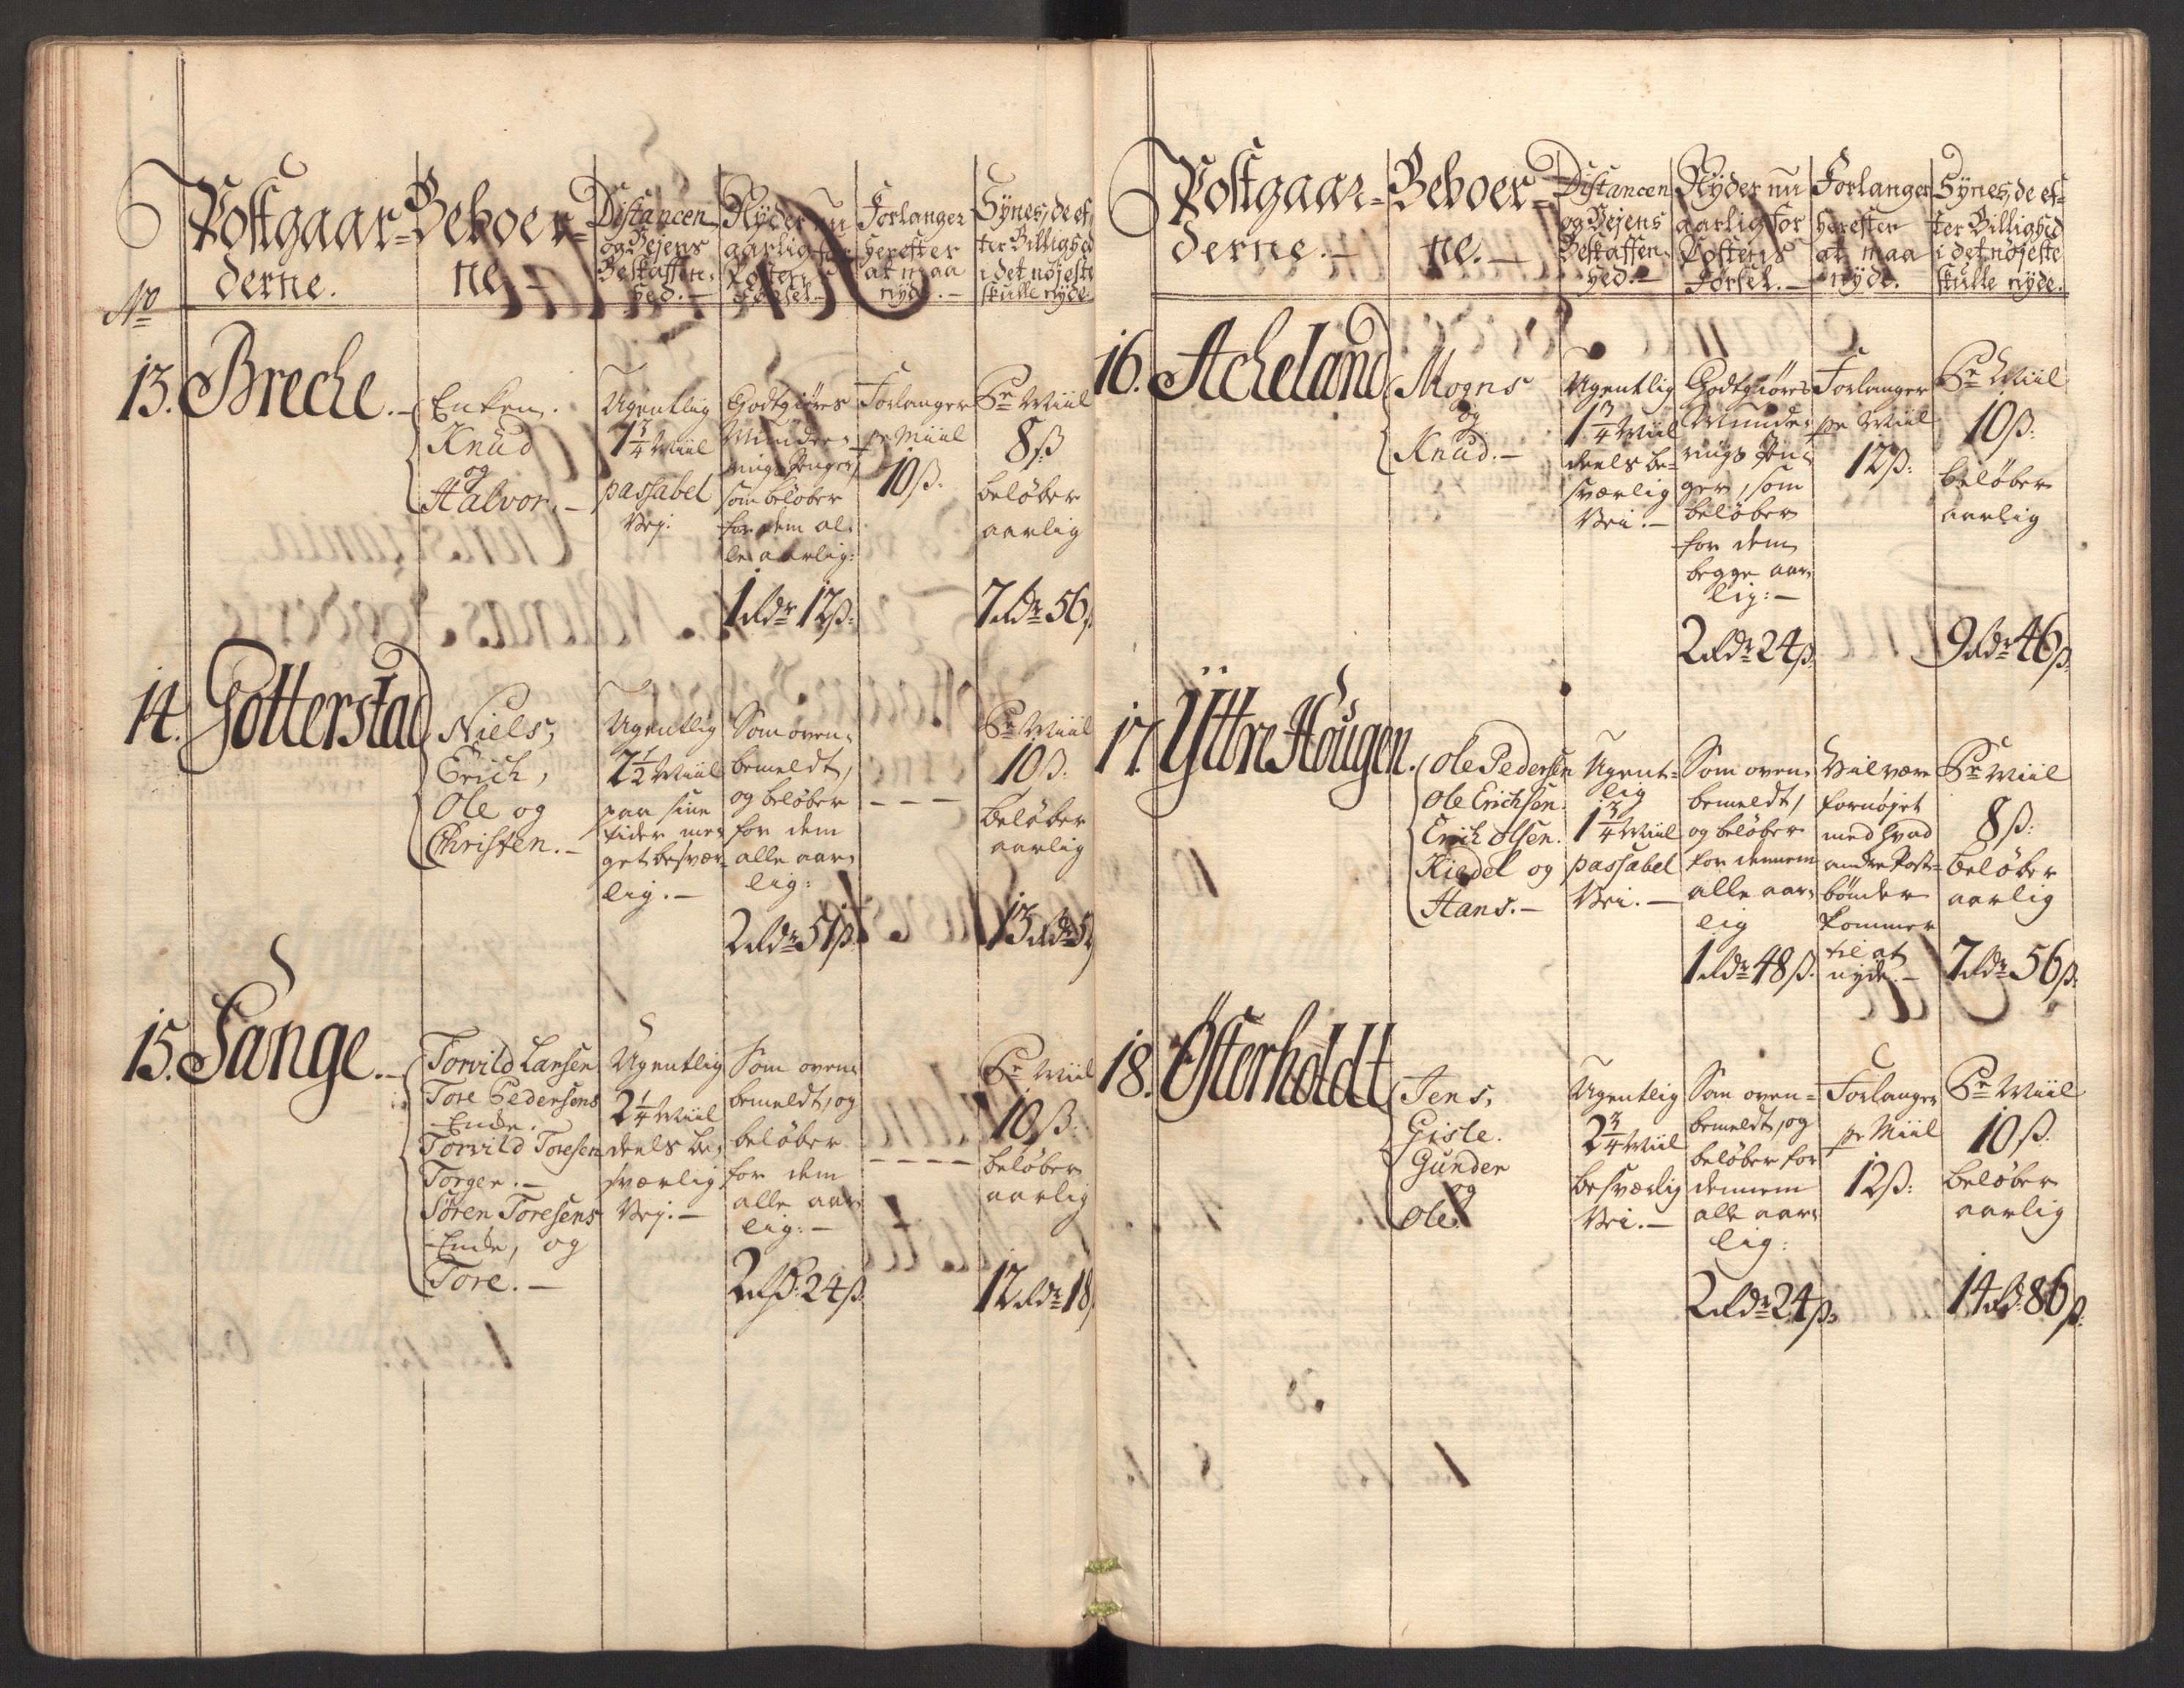 No
Postgaar=
derne.
Beboer=
ne.
Distancen
og Vejens
Beskaffen=
hed.
Nyder nu
aarlig for
Postens
Førsel.
Forlanger
herefter
at maa
nyde.
Synes, de ef=
ter Billighed
i det nøjeste
skulle nyde.
13. Breche.
Enken.
Knud
og
Halvor.
Ugentlig
1 3/4 Miil
passabel
Vej.
Godtgiøres
Munde=
rings Penger,
som beløber
for dem al=
le aarlig:
1 Rdr 12 ß.
Forlanger
pr Miil
10 ß.
Pr Miil
8 ß
beløber
aarlig
7 Rdr 56 ß
14. Gotterstad
Niels,
Erich,
Ole og
Christen.
Ugentlig
2 1/2 Miil
paa sine
tider me=
get besvær=
lig.
Som oven=
bemeldt,
og beløber
for dem
alle aar=
lig:
2 Rdr 51 ß.
- - -
Pr Miil
10 ß.
beløber
aarlig
13 Rdr 5
15. Sange.
Torvild Larsen
Tore Pedersens
Enke.
Torvild Toresen
Torger.
Søren Toresens
Enke, og
Tore.
Ugentlig
2 1/4 Miil
deels be=
sværlig
Vej.
Som oven=
bemeldt, og
beløber
for dem
alle aar=
lig:
2 Rdr 24 ß.
- - - -
Pr Miil
10 ß.
beløber
aarlig
12 Rdr 18
Postgaar=
derne.
Beboer=
ne.
Distancen
og Vejens
Beskaffen=
hed.
Nyder nu
aarlig for
Postens
Førsel.
Forlanger
herefter
at maa
nyde.
Synes, de ef=
ter Billighed
i det nøjeste
skulle nyde.
16. Acheland
Mogns
og
Knud.
Ugentlig
1 3/4 Miil
deels be=
sværlig
Vei.
Godtgiøres
Munde=
rings Pen=
ger, som
beløber
for dem
begge aar=
lig:
2 Rdr 24 ß.
Forlanger
pr Miil
12 ß.
Pr Miil
10 ß.
beløber
aarlig
9 Rdr 46 ß.
17. Yttre Hougen.
Ole Pedersen
Ole Erichsen.
Erich Olsen.
Kiedel og
Hans.
Ugent=
lig
1 3/4 Miil
passabel
Vei.
Som oven=
bemeldt,
og beløber
for dennem
alle aar=
lig
1 Rdr 48 ß.
Vil være
fornøjet
med hvad
andre Post=
bønder
kommer
til at
nyde.
Pr Miil
8 ß.
beløber
aarlig
7 Rdr 56 ß.
18. Østerholdt
Jens,
Gisle.
Gunder
og
Ole.
Ugentlig
2 3/4 Miil
besværlig
Vei.
Som oven=
bemeldt, og
beløber for
dennem
alle aar=
lig:
2 Rdr 24 ß.
Forlanger
pr Miil
12 ß.
Pr Miil
10 ß.
beløber
aarlig
14 Rdr 86 ß.